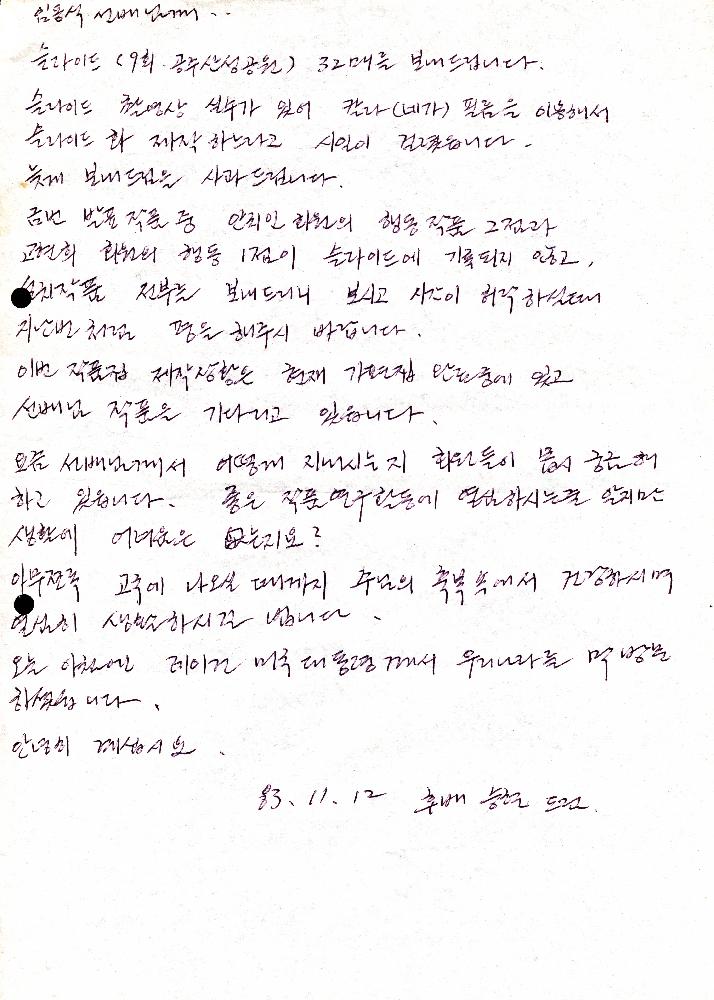 임동식 선배님께..
슬라이드 (9회. 공주산성공원) 32매를 보내드립니다.
슬라이드 촬영상 실수가 있어 칼라(네가) 필름을 이용해서
슬라이드화 제작하느라고 시일이 걸렸읍니다.
늦게 보내드림을 사과드립니다.
금번 발표작품 중 안치인 회원의 행동작품 2점과
고현희 회원의 행동 1점이 슬라이드에 기록되지 않고,
설치작품 전부를 보내드리니 보시고 시간이 허락하실때
지난번처럼 평을 해주시 바랍니다.
이번 작품집 제작상황은 현재 가편집 완료중에 있고
선배님 작품을 기다리고 있읍니다.
요즘 선배님께서 어떻게 지내시는지 회원들이 몹시 궁금해
하고 있읍니다. 좋은 작품연구활동에 열심하시는줄 알지만
생활에 어려움은 없는지요?
아무쪼록 고국에 나오실 때까지 주님의 축복속에서 건강하시며
열심히 생활하시길 빕니다.
오늘 아침에 레이건 미국 대통령께서 우리나라를 막 방문
하셨읍니다.
안녕히 계십시요.
83. 11. 12 후배 드림.